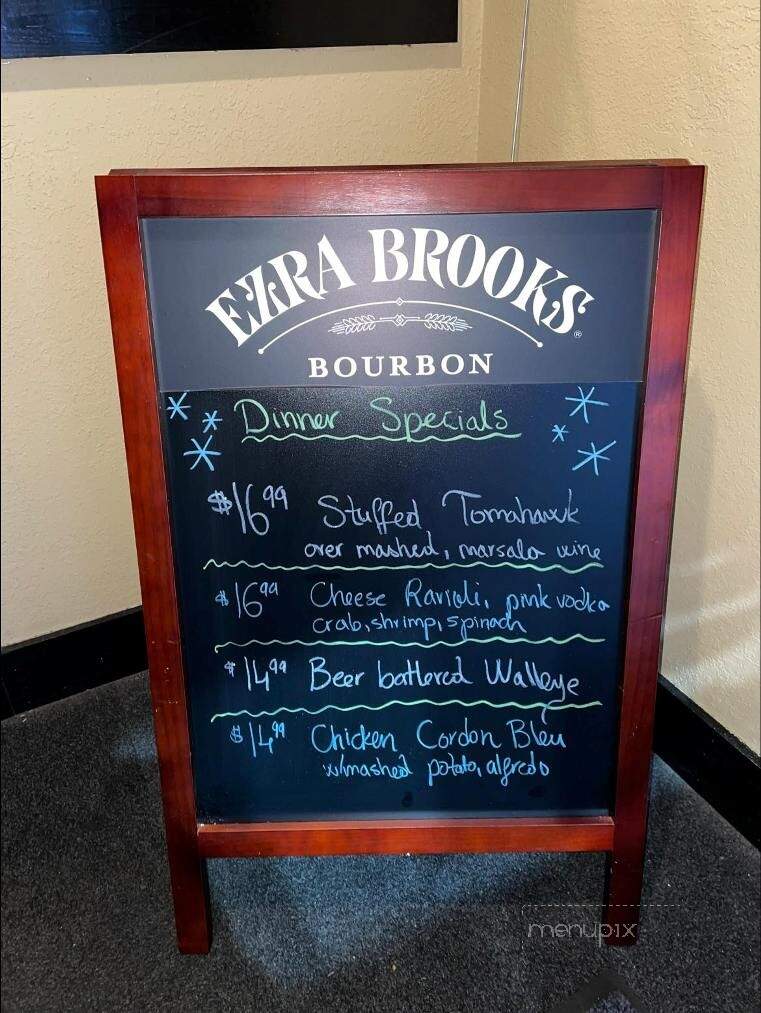 EZRA BROOKS®
BOURBON
Dinner Specials
$16.99 Stuffed Tomahawk
over mashed, marsala wine
$16.99 Cheese Ravioli, pink vodka
crab, shrimp, spinach
$14.99 Beer battered Walleye
$14.99 Chicken Cordon Bleu
w/mashed potato, alfredo
menupix